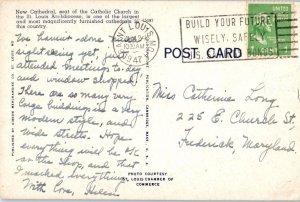 New Cathedral, seat of the Catholic Church in
the St. Louis Archdiocese, is one of the largest
and most magnificently furnished cathedrals in
this country.
SAINT LOUIS, MO.
1030AM
1947
BUILD YOUR FUTURE
WISELY, SAFELY
U.S. SAVINGS BONDS
POST CARD
We haven't done much
sight seeing yet, just
attended meetings to-day
and window shopped.
There are so many very
large buildings in a very
modern style, and
wide streets. Hope
everything will be O.K.
in the Shop, and that
I marked everything.
With Love, Helen
Miss Catherine Long
225 E. Church St.
Frederick, Maryland
PHOTO COURTESY
ST. LOUIS CHAMBER OF
COMMERCE